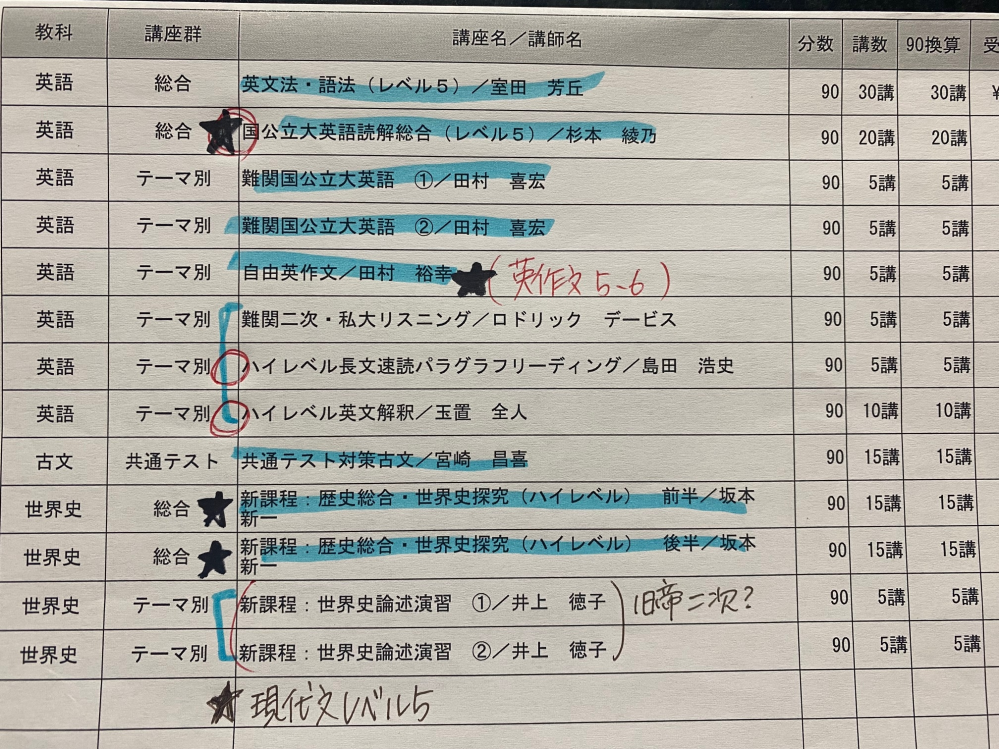 教科 講座群 講座名／講師名 分数 講数 90換算 受
英語 総合 英文法・語法（レベル５）／室田 芳丘 90 30講 30講 ¥
英語 総合 国公立大英語読解総合（レベル５）／杉本 綾乃 90 20講 20講
英語 テーマ別 難関国公立大英語 ①／田村 喜宏 90 5講 5講
英語 テーマ別 難関国公立大英語 ②／田村 喜宏 90 5講 5講
英語 テーマ別 自由英作文／田村 裕幸 (英作文 5、6) 90 5講 5講
英語 テーマ別 難関二次・私大リスニング／ロドリック デービス 90 5講 5講
英語 テーマ別 ハイレベル長文速読パラグラフリーディング／島田 浩史 90 5講 5講
英語 テーマ別 ハイレベル英文解釈／玉置 全人 90 10講 10講
古文 共通テスト 共通テスト対策古文／宮崎 昌喜 90 15講 15講
世界史 総合 新課程：歴史総合・世界史探究（ハイレベル） 前半／坂本 90 15講 15講
新一
世界史 総合 新課程：歴史総合・世界史探究（ハイレベル） 後半／坂本 90 15講 15講
新一
世界史 テーマ別 新課程：世界史論述演習 ①／井上 徳子 旧帝二次? 90 5講 5講
世界史 テーマ別 新課程：世界史論述演習 ②／井上 徳子 90 5講 5講
★現代文レベル5